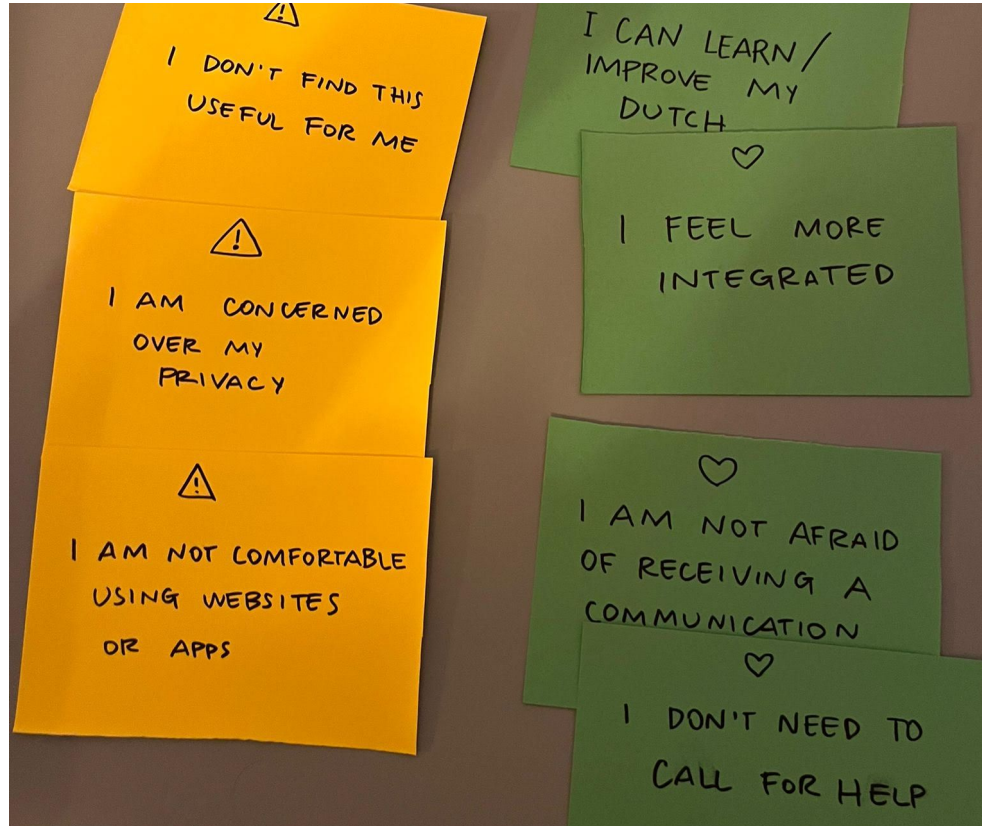 I DON'T FIND THIS
USEFUL FOR ME
I AM CONCERNED
OVER MY
PRIVACY
I AM NOT COMFORTABLE
USING WEBSITES
OR APPS
I CAN LEARN/
IMPROVE MY
DUTCH
I FEEL MORE
INTEGRATED
I AM NOT AFRAID
OF RECEIVING A
COMMUNICATION
I DON'T NEED TO
CALL FOR HELP